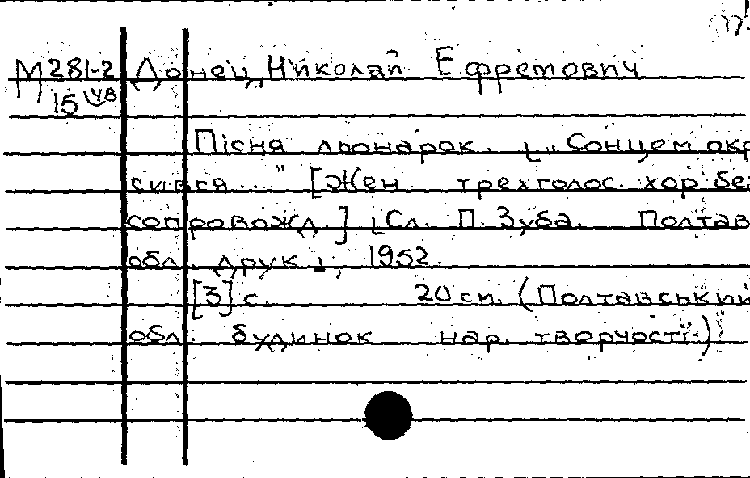 М281-2 Донец, Николай Ефремович
15
Пісня льонарок. „Сонцем окр
сився..." [Жен. трехголос. хор без
сопровожд.] Сл. П. Зуба. Полтав
обл. друк., 1952.
[3] с. 20 см. (Полтавський
обл. будинок нар. творчості.)